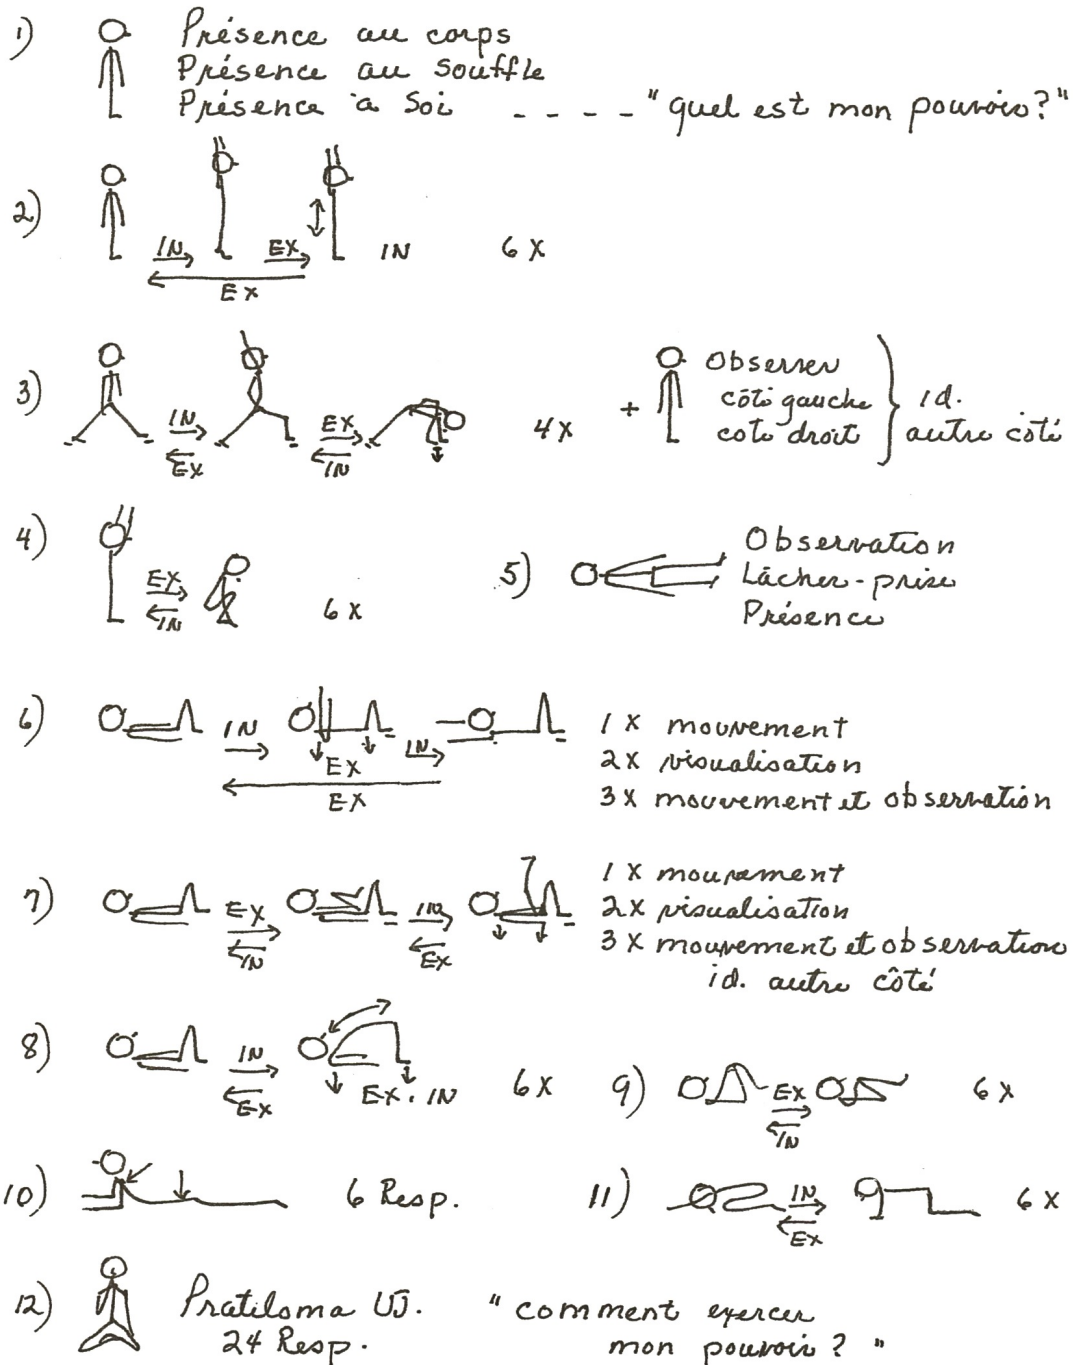 1) Présence au corps
Présence au souffle
Présence à Soi - - - - "quel est mon pouvoir?"
2) IN EX IN 6 X
EX
3) IN EX 4 X + Observer côté gauche coté droit id. autre côté
EX IN
4) EX 6 X
IN
5) Observation
Lâcher-prise
Présence
6) IN EX IN 1 X mouvement
EX 2X visualisation
3X mouvement et observation
7) EX IN 1 X mouvement
IN EX 2X visualisation
3X mouvement et observation
id. autre côté
8) IN EX. IN 6 X
EX
9) EX 6 X
IN
10) 6 Resp.
11) IN 6 X
EX
12) Pratiloma UJ. "comment exercer
24 Resp. mon pouvoir? "